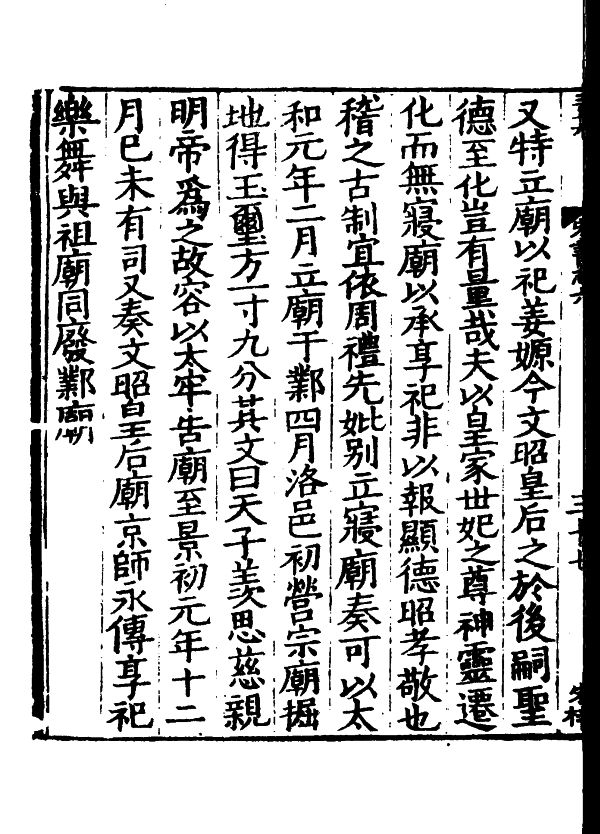 又特立廟以祀姜嫄今文昭皇后之於後嗣聖
德至化豈有量哉夫以皇家世妃之尊神靈遷
化而無寢廟以承享祀非以報顯德昭孝敬也
稽之古制宜依周禮先妣别立寢廟奏可以太
和元年二月立廟于鄴四月洛邑初營宗廟掘
地得玉璽方一寸九分其文曰天子羡思慈親
明帝爲之改容以太牢告廟至景初元年十二
月已未有司又奏文昭皇后廟京師永傳享祀
樂舞與祖廟同廢鄴廟